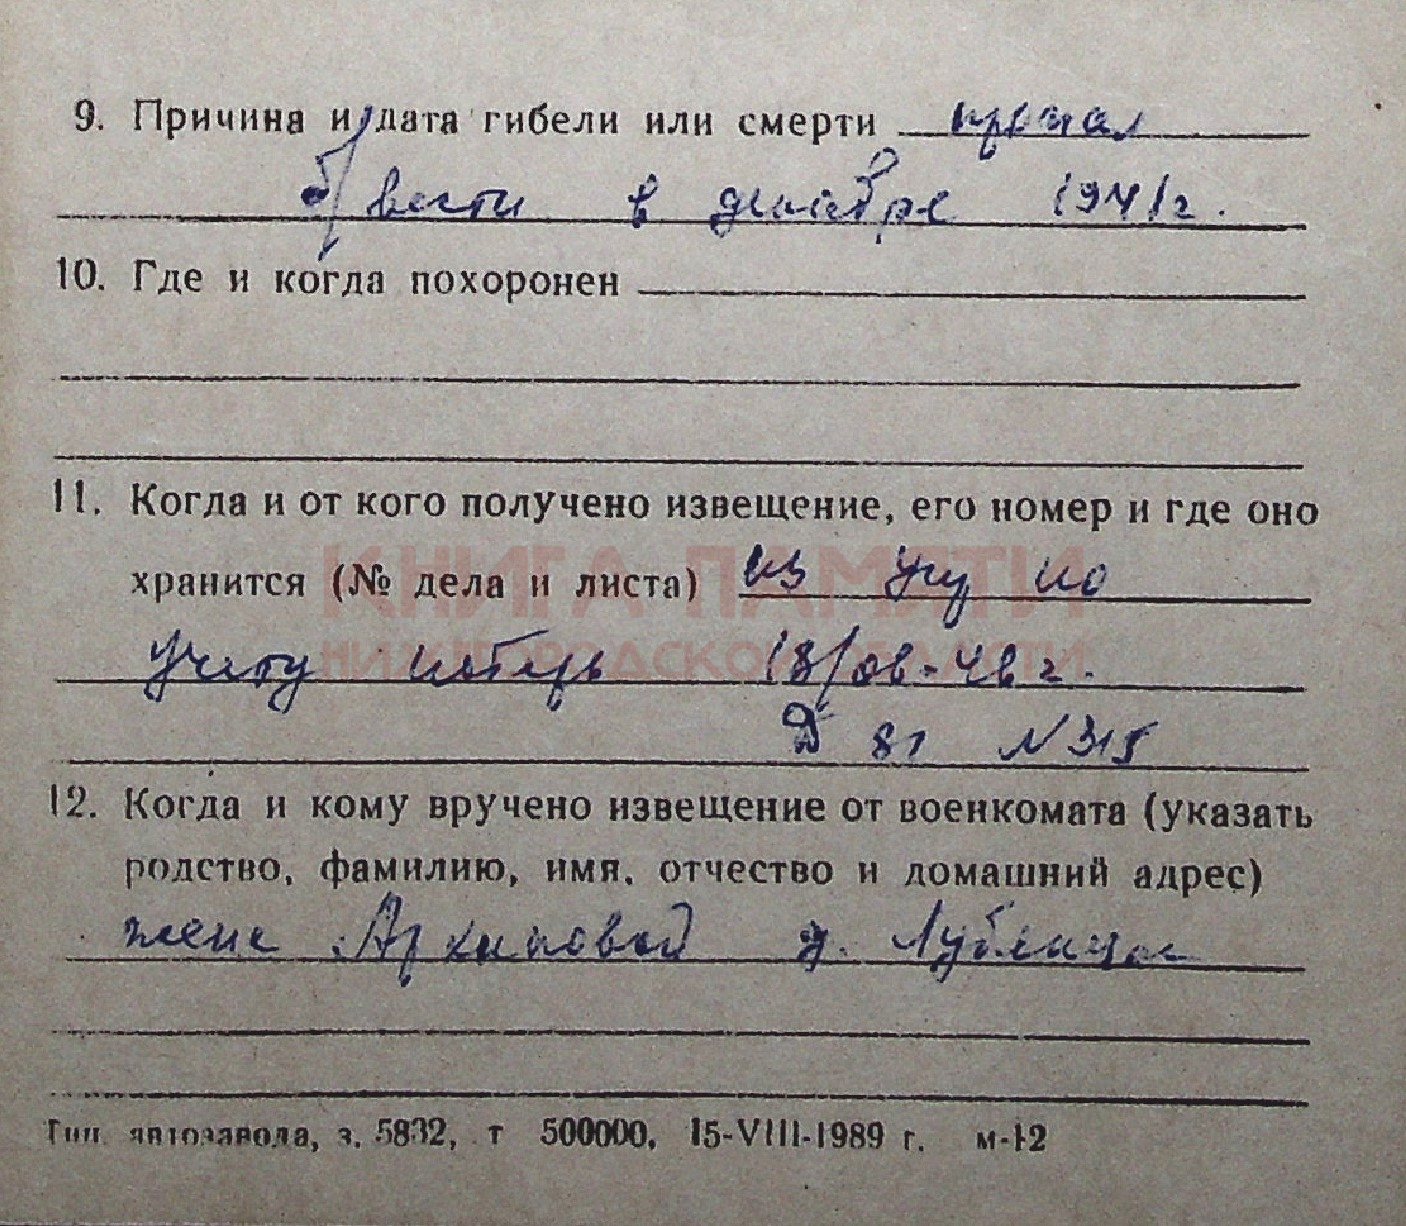 9. Причина и дата гибели или смерти пропал
б/вести в декабре 1941г.
10. Где и когда похоронен
11. Когда и от кого получено извещение, его номер и где оно
КНИГА ПАМЯТИ
хранится (№ дела и листа) из упр по
НИЖЕГОРОДСКОЙ ОБЛАСТИ
учету потерь 18/ов-48г.
Д 81 N315
12. Когда и кому вручено извещение от военкомата (указать
родство, фамилию, имя, отчество и домашний адрес)
жене Архиповой д.
Тип. автозавода, з. 5832, т 500000, 15-VIII-1989 г. м-12